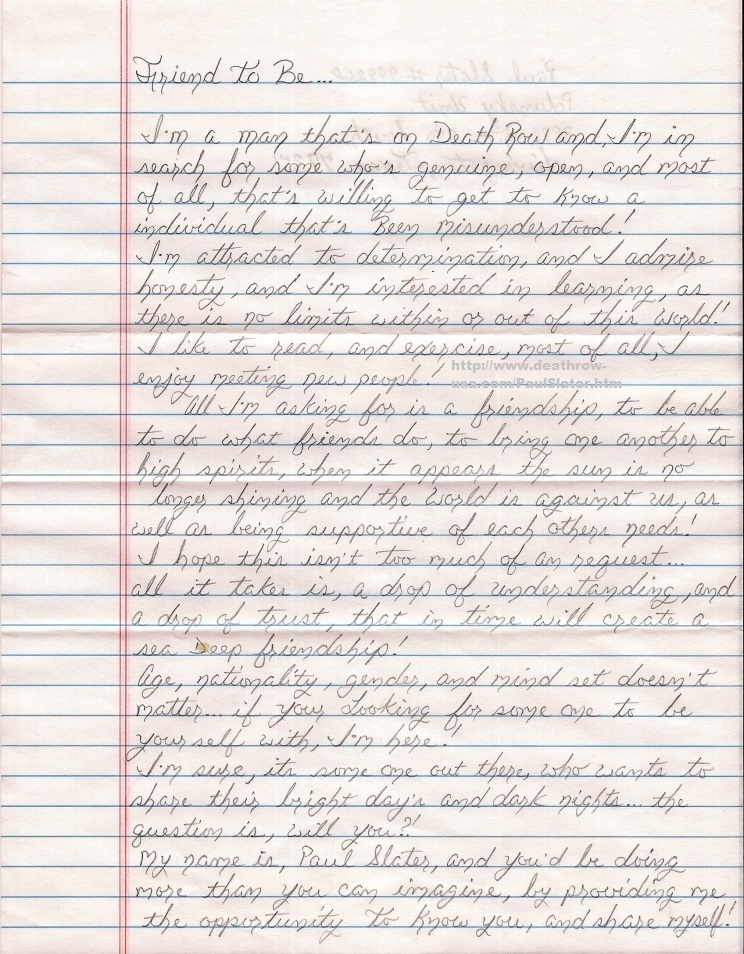 Friend to Be...
I'm a man that's on Death Row and, I'm in
search for some who's genuine, open, and most
of all, that's willing to get to know a
individual that's Been misunderstood!
I'm attracted to determination, and I admire
honesty, and I'm interested in learning, as
there is no limits within or out of this world!
I like to read, and exercise, most of all, I
http://www.deathrow-
enjoy meeting new people!
usa.com/PaulSlator.htm
All I'm asking for is a friendship, to be able
to do what friends do, to bring one another to
high spirits, when it appears the sun is no
longer shining and the world is against us, as
well as being supportive of each others needs!
I hope this isn't too much of an request...
all it takes is, a drop of understanding, and
a drop of trust, that in time will create a
sea Deep friendship!
Age, nationality, gender, and mind set doesn't
matter... if your Looking for some one to be
your self with, I'm here!
I'm sure, its some one out there, who wants to
share their bright day's and dark nights... the
question is, will you?!
My name is, Paul Slater, and you'd be doing
more than you can imagine, by providing me
the opportunity To Know you, and share myself!